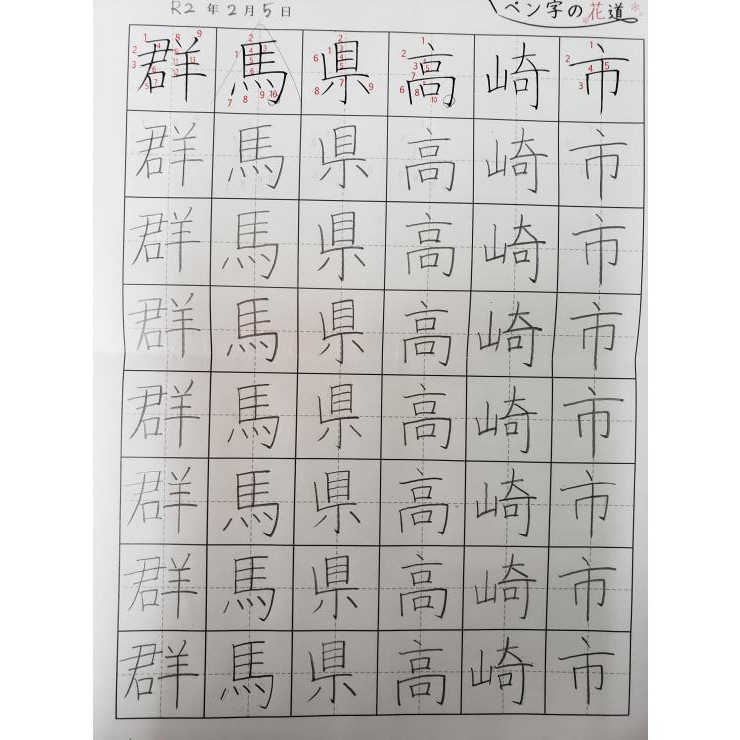 R2年2月5日 ペン字の花道
群馬県高崎市
群馬県高崎市
群馬県高崎市
群馬県高崎市
群馬県高崎市
群馬県高崎市
群馬県高崎市
群馬県高崎市